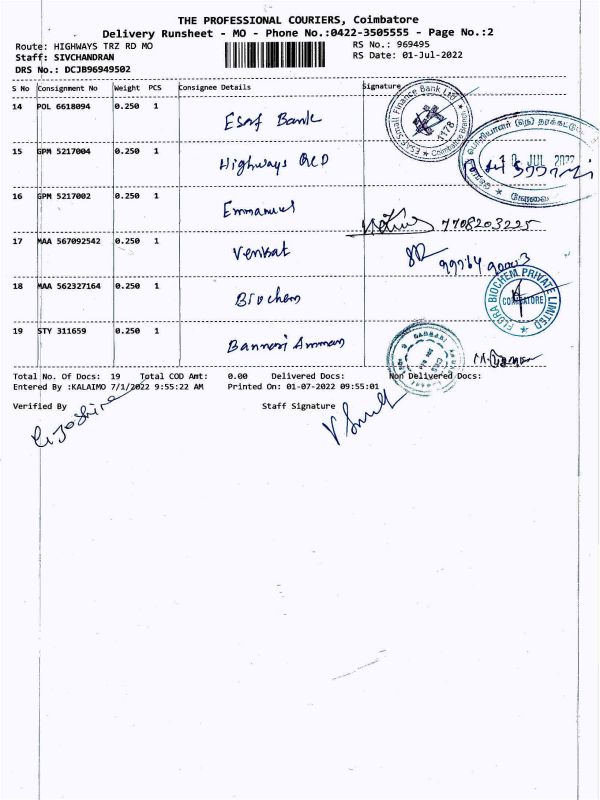 THE PROFESSIONAL COURIERS, Coimbatore
Delivery Runsheet - MO - Phone No.:0422-3505555 - Page No.:2
Route: HIGHWAYS TRZ RD MO RS No.: 969495
Staff: SIVCHANDRAN RS Date: 01-Jul-2022
DRS No.: DCJB96949502
S No Consignment No Weight PCS Consignee Details Signature
14 POL 6618094 0.250 1 Esaf Bank
ESAF Small Finance Bank Ltd. Coimbatore Branch 3178
15 GPM 5217004 0.250 1 Highways
பொறியாளர் (நெ) தரக்கட்டு
JUL 2022
கோவை
16 GPM 5217002 0.250 1 Emmanuel 7708203225
17 MAA 567092542 0.250 1 Venkat
18 MAA 562327164 0.250 1 Biochem
FLORA BIOCHEM PRIVATE LIMITED COIMBATORE
19 STY 311659 0.250 1 Bannari Amman
Total No. Of Docs: 19 Total COD Amt: 0.00 Delivered Docs: Non Delivered Docs:
Entered By :KALAIMO 7/1/2022 9:55:22 AM Printed On: 01-07-2022 09:55:01
Verified By Staff Signature